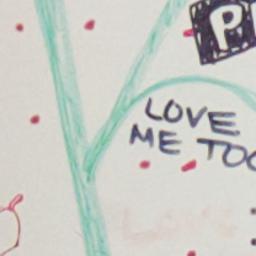 P
LOVE
ME TOO